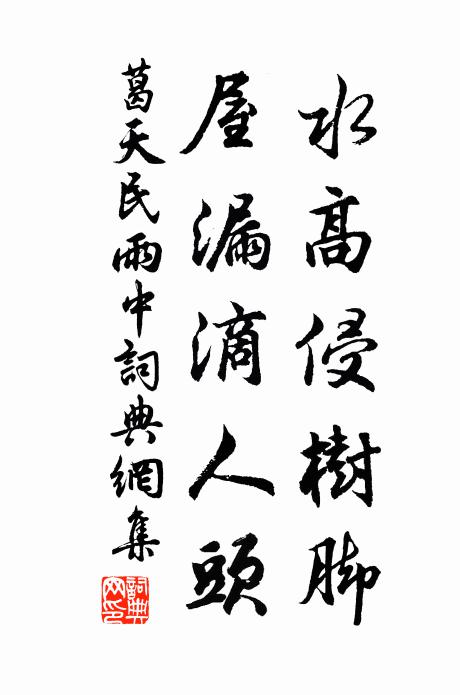 水高侵樹脚
屋漏滴人頭
葛天民雨中詞典網集
詞典网印